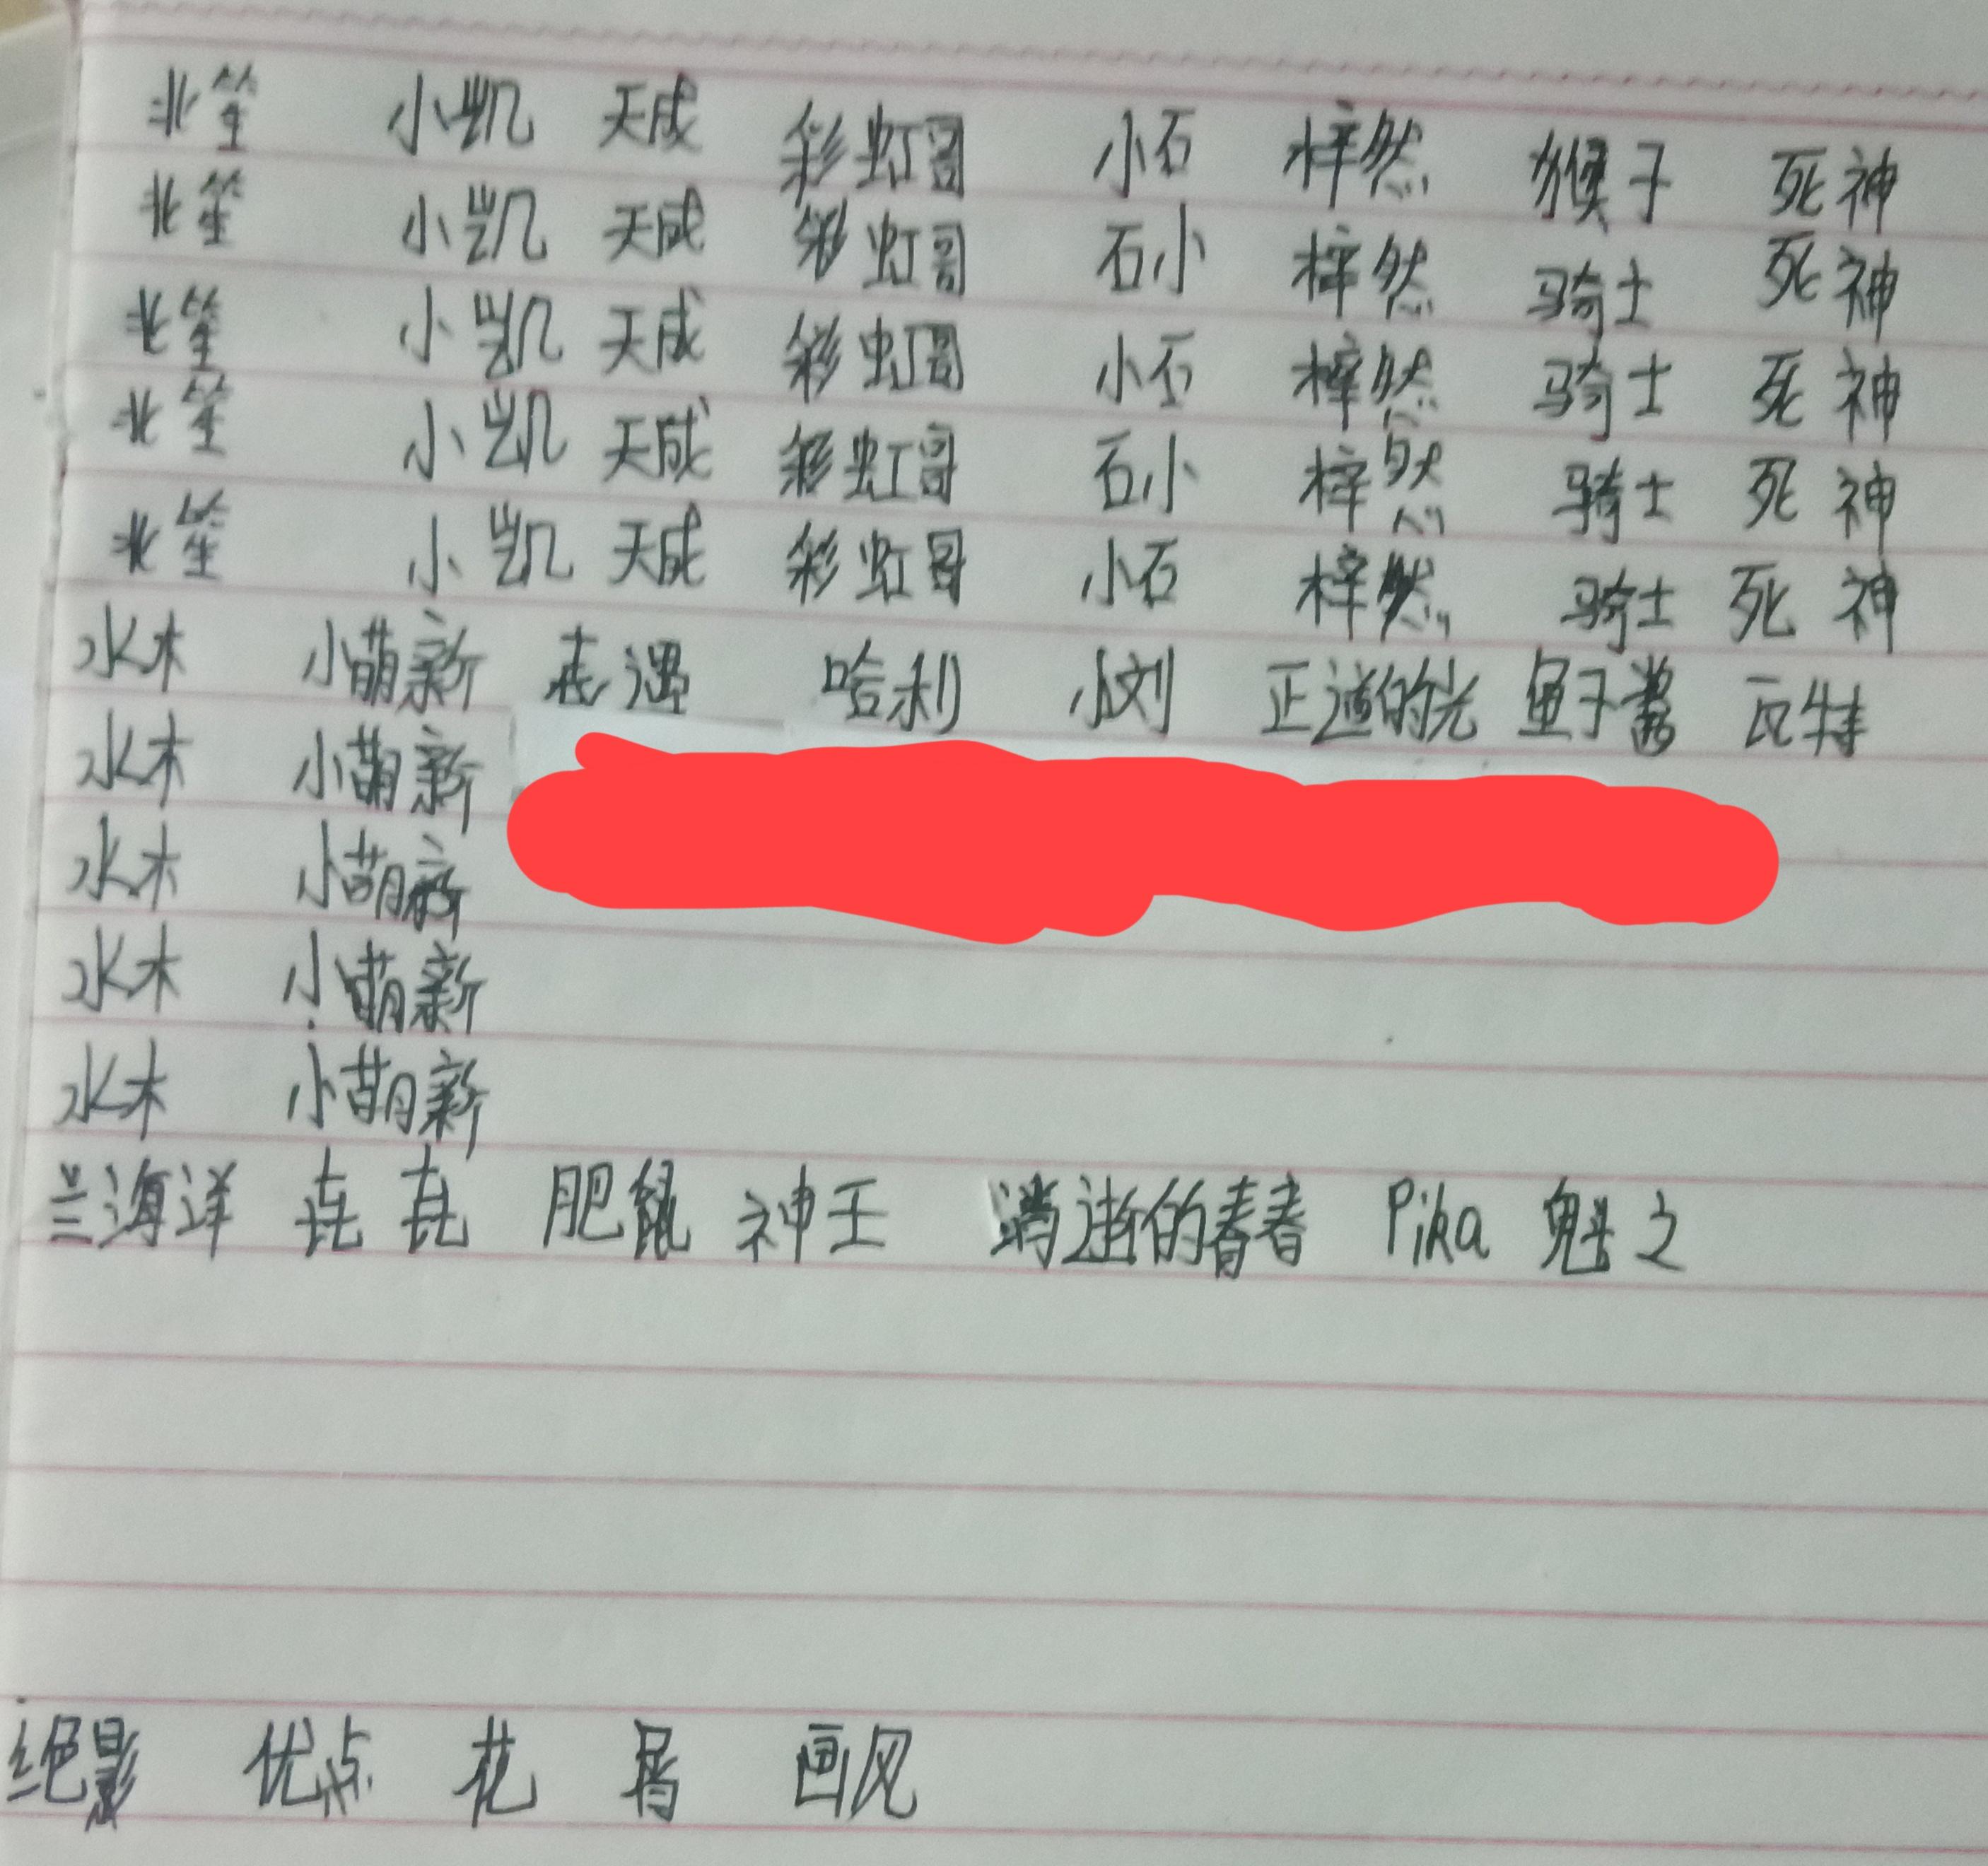 北笙 小凯 天成 彩虹哥 小石 梓然 猴子 死神
北笙 小凯 天成 彩虹哥 石小 梓然 骑士 死神
北笙 小凯 天成 彩虹哥 小石 梓然 骑士 死神
北笙 小凯 天成 彩虹哥 石小 梓然 骑士 死神
北笙 小凯 天成 彩虹哥 小石 梓然 骑士 死神
水木 小萌新 遇 哈利 小刘 正道的光 鱼子酱 瓦特
水木 小萌新
水木 小萌新
水木 小萌新
水木 小萌新
兰海洋 垚垚 肥鼠 神王 消逝的春春 Pika 魁之
绝影 优点 花 画风